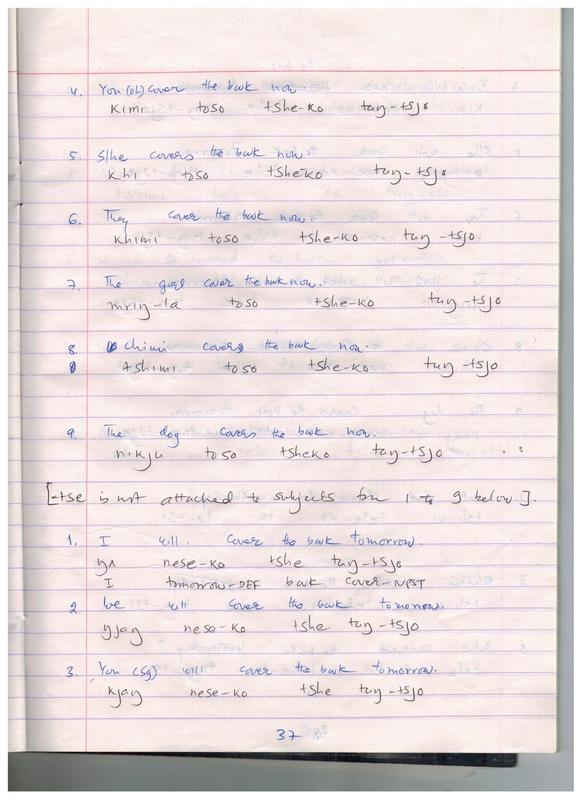 4. You (pl) cover the book now.
kimi toso tshe-ko taŋ-tsjo
5. S/he covers the book now.
khi toso tsheko taŋ-tsjo
6. They cover the book now.
khimi toso tshe-ko taŋ-tsjo
7. The girl cover the book now.
mriŋ-la toso tshe-ko taŋ-tsjo
8. Chimi covers the book now.
tshimi toso tshe-ko taŋ-tsjo
9. The dog covers the book now.
nikju toso tsheko taŋ-tsjo
[-tse is not attached to subjects for 1 to 9 below].
1. I will cover the book tomorrow.
ŋʌ nese-ko tshe taŋ-tsjo
I tomorrow-DEF book cover-NPST
2. We will cover the book tomorrow.
ŋjaŋ nese-ko tshe taŋ-tsjo
3. You (sg) will cover the book tomorrow.
kjaŋ nese-ko tshe taŋ-tsjo
37